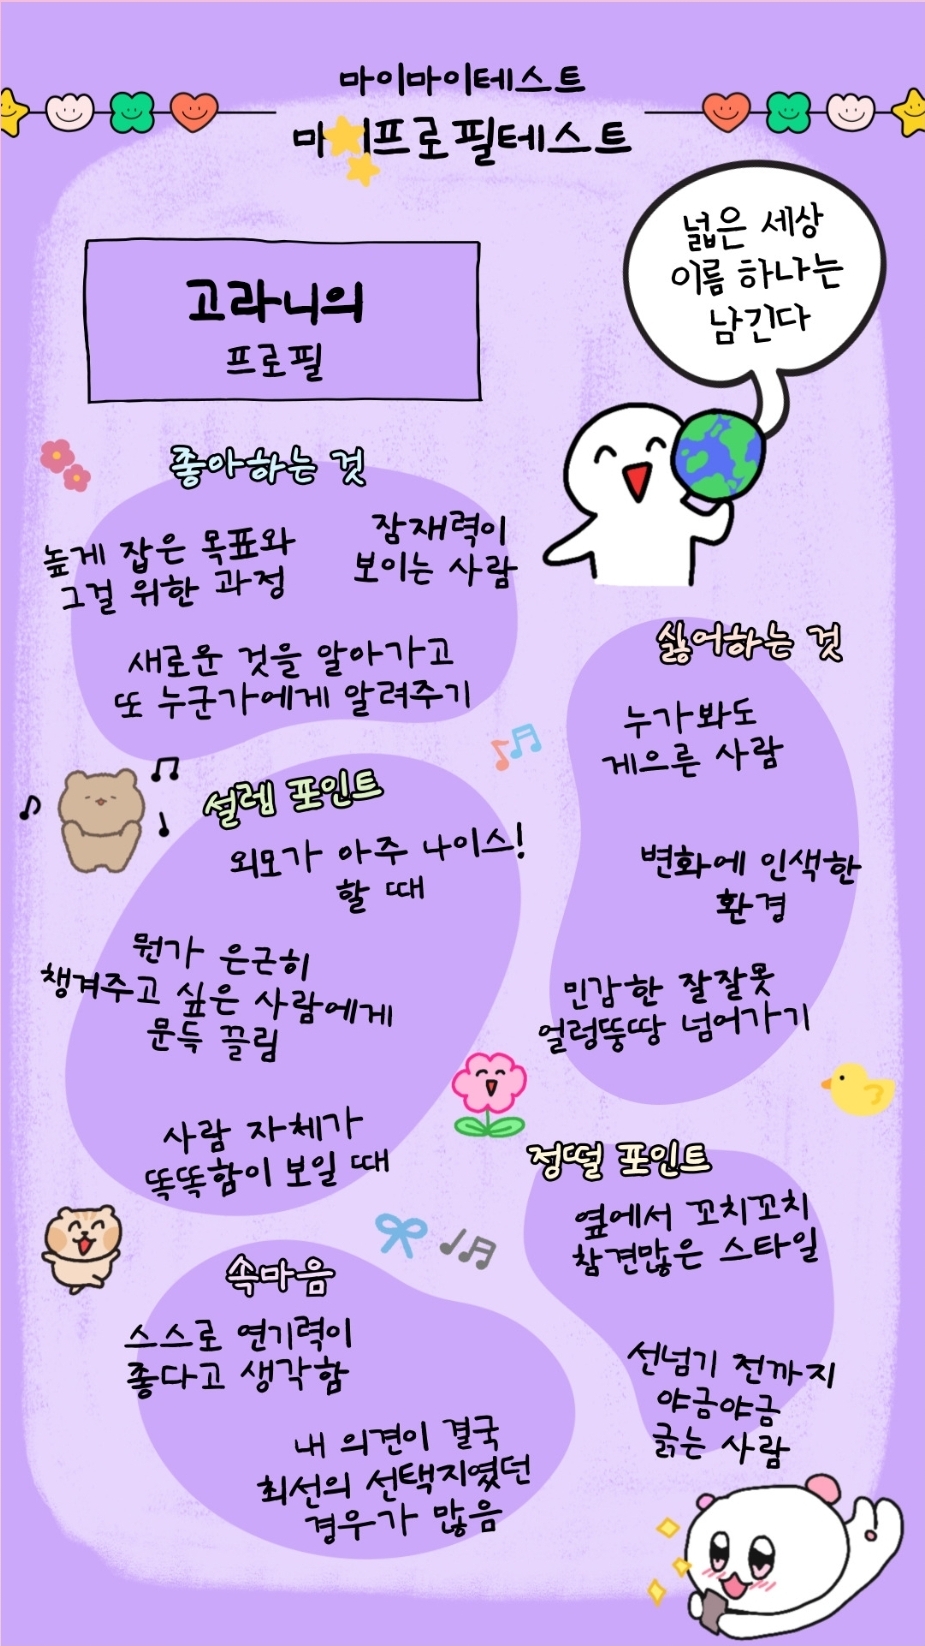 마이마이테스트
마이프로필테스트
넓은 세상
이름 하나는
남긴다
고라니의
프로필
좋아하는 것
높게 잡은 목표와
그걸 위한 과정
잠재력이
보이는 사람
새로운 것을 알아가고
또 누군가에게 알려주기
싫어하는 것
누가봐도
게으른 사람
변화에 인색한
환경
민감한 잘잘못
얼렁뚱땅 넘어가기
설렘 포인트
외모가 아주 나이스!
할 때
뭔가 은근히
챙겨주고 싶은 사람에게
문득 끌림
사람 자체가
똑똑함이 보일 때
정떨 포인트
옆에서 꼬치꼬치
참견많은 스타일
선넘기 전까지
야금야금
긁는 사람
속마음
스스로 연기력이
좋다고 생각함
내 의견이 결국
최선의 선택지였던
경우가 많음